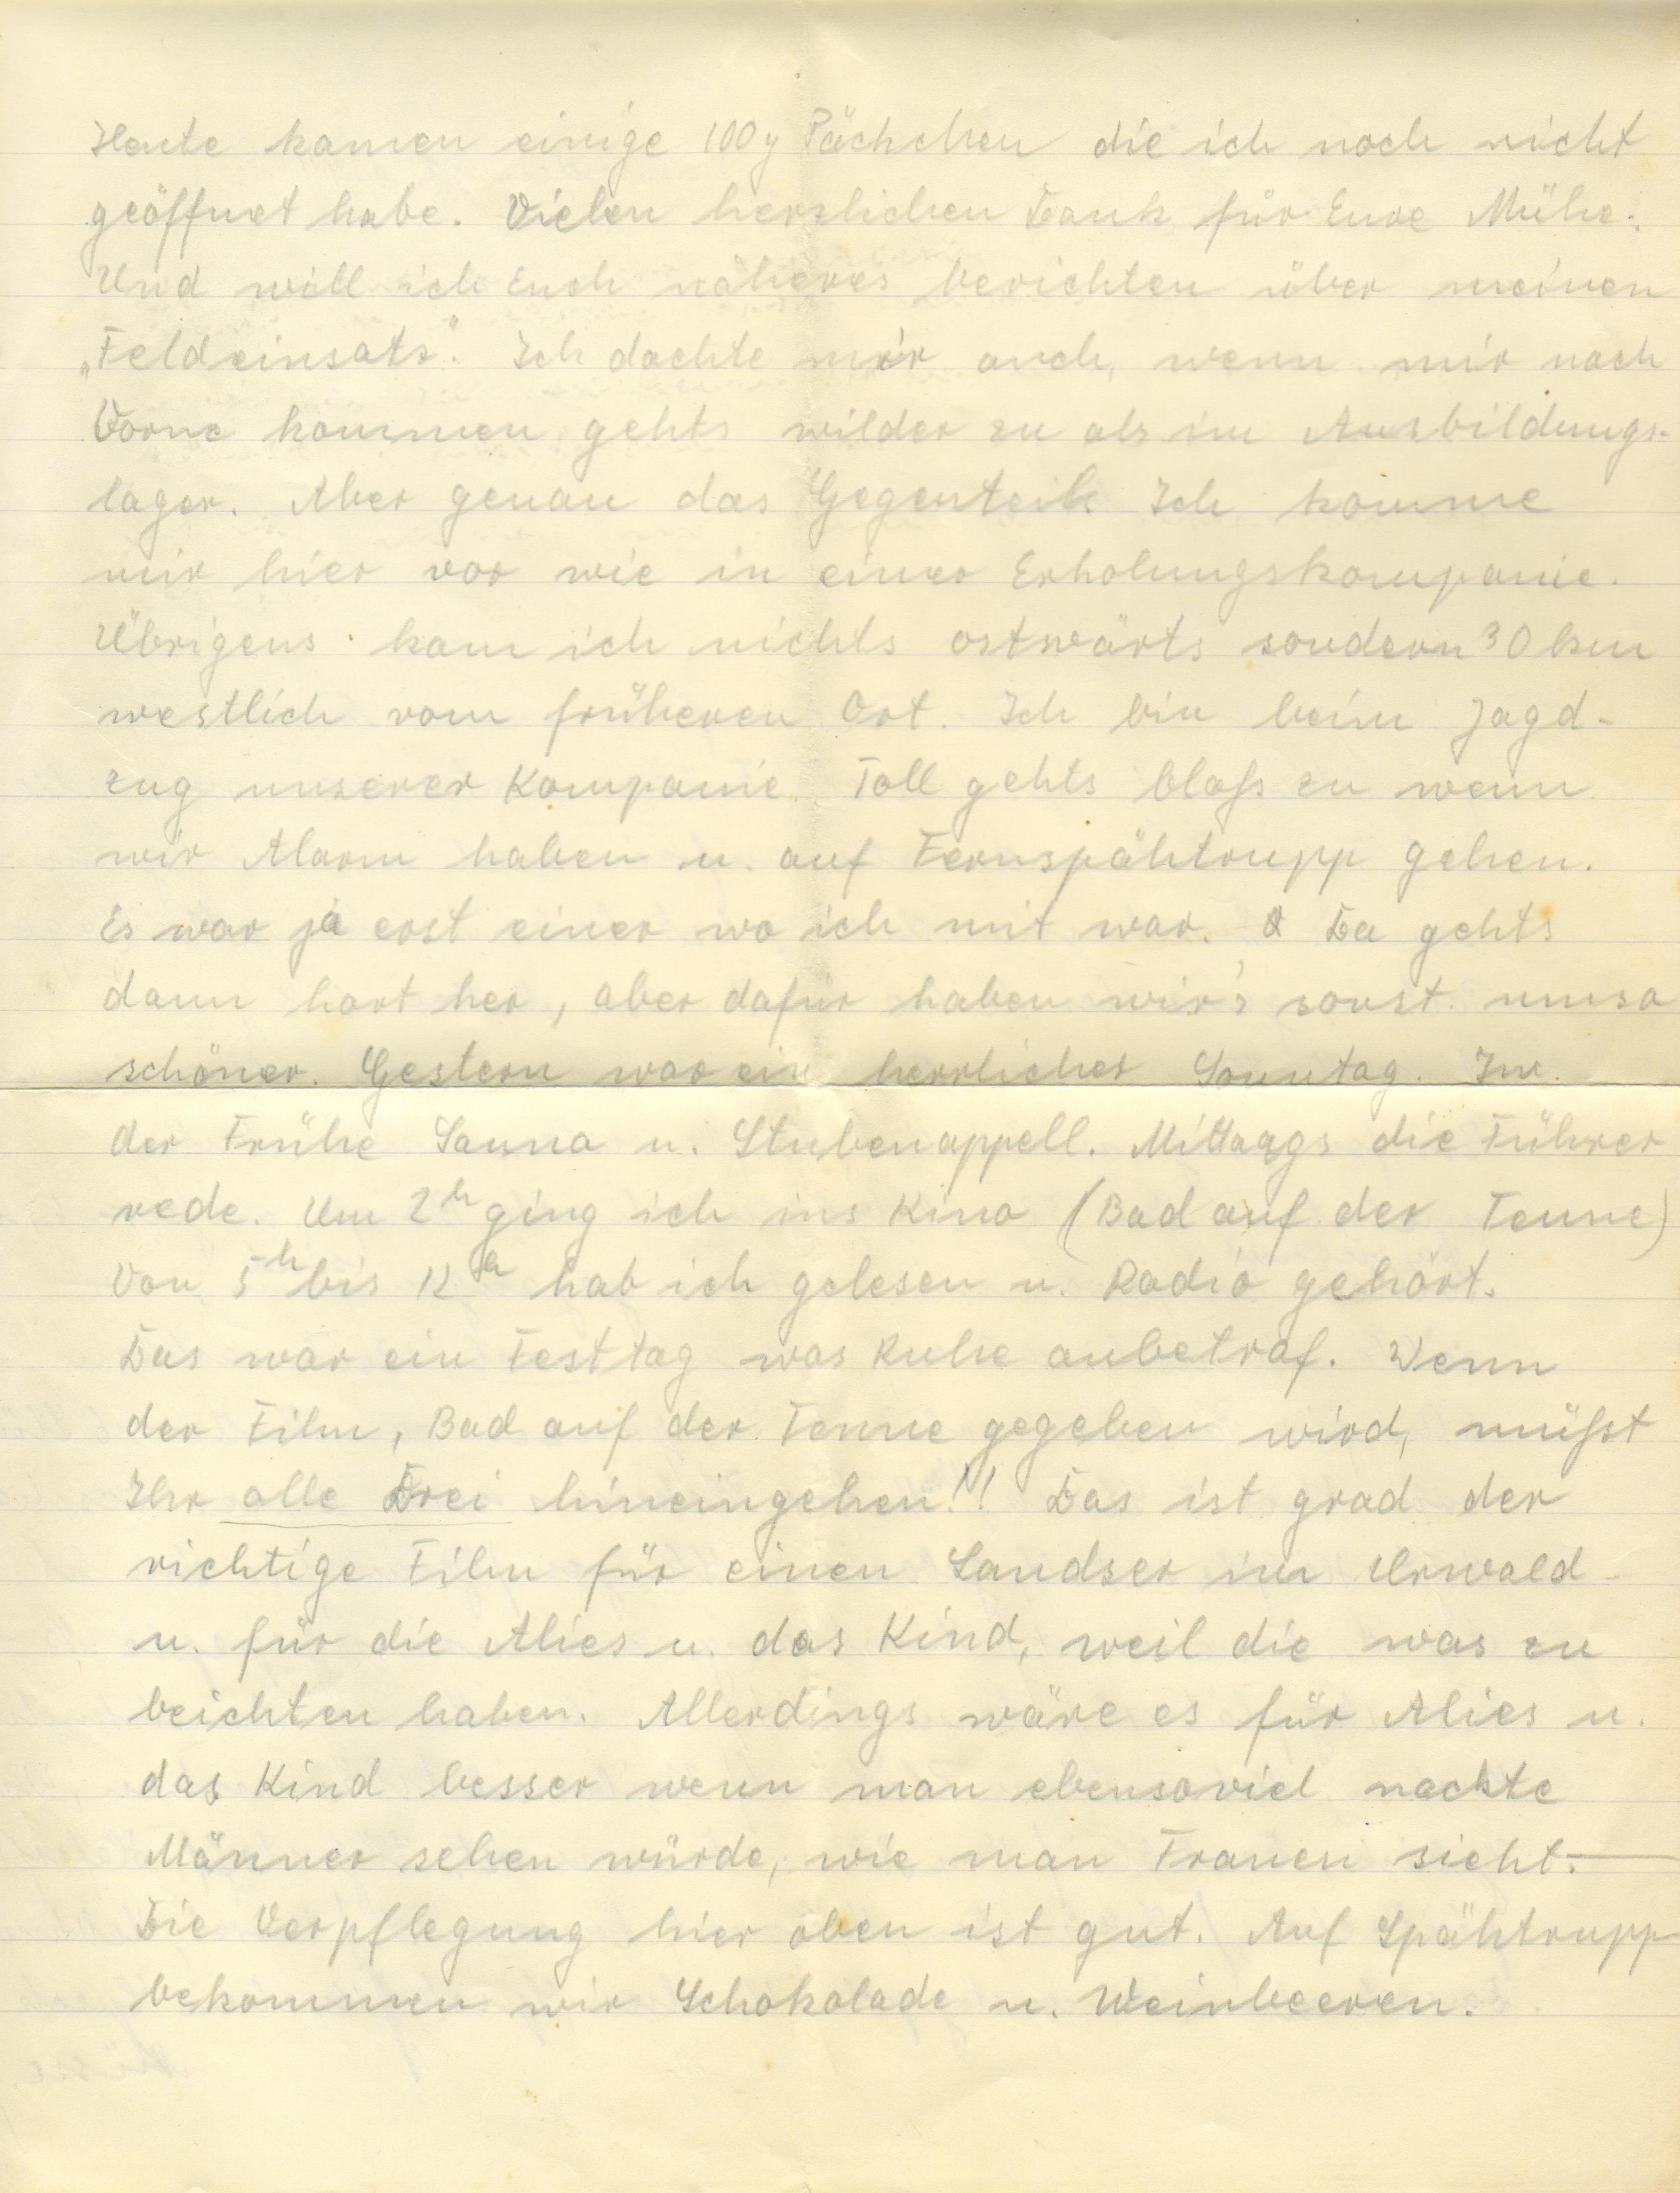 Heute kamen einige 100g Päckchen die ich noch nicht
geöffnet habe. Vielen herzlichen Dank für Eure Mühe.
Und will ich Euch näheres berichten über meinen
„Feldeinsatz". Ich dachte mir auch, wenn mir nach
Vorne kommen gehts wilder zu als im Ausbildungs-
lager. Aber genau das Gegenteil. Ich komme
mir hier vor wie in einer Erholungskompanie.
Übrigens kam ich nichts ostwärts sondern 30 km
westlich vom früheren Ort. Ich bin beim Jagd-
zug unserer Kompanie. Toll gehts bloß zu wenn
wir Alarm haben u. auf Fernspähtrupp gehen.
Es war ja erst einer wo ich mit war. Da gehts
dann hart her, aber dafür haben wir's sonst umso
schöner. Gestern war ein herrlicher Sonntag. In
der Frühe Sauna u. Stubenappell. Mittags die Führer
rede. Um 2h ging ich ins Kino (Bad auf der Tenne)
Von 5h bis 12h hab ich gelesen u. Radio gehört.
Das war ein Festtag was Ruhe anbetraf. Wenn
der Film, Bad auf der Tenne gegeben wird, müßt
Ihr alle Drei hineingehen!! Das ist grad der
richtige Film für einen Landser im Urwald
u. für die Alies u. das Kind, weil die was zu
beichten haben. Allerdings wäre es für Alies u.
das Kind besser wenn man ebensoviel nackte
Männer sehen würde, wie man Frauen sieht.—
Die Verpflegung hier oben ist gut. Auf Spähtrupp
bekommen wir Schokolade u. Weinbeeren.